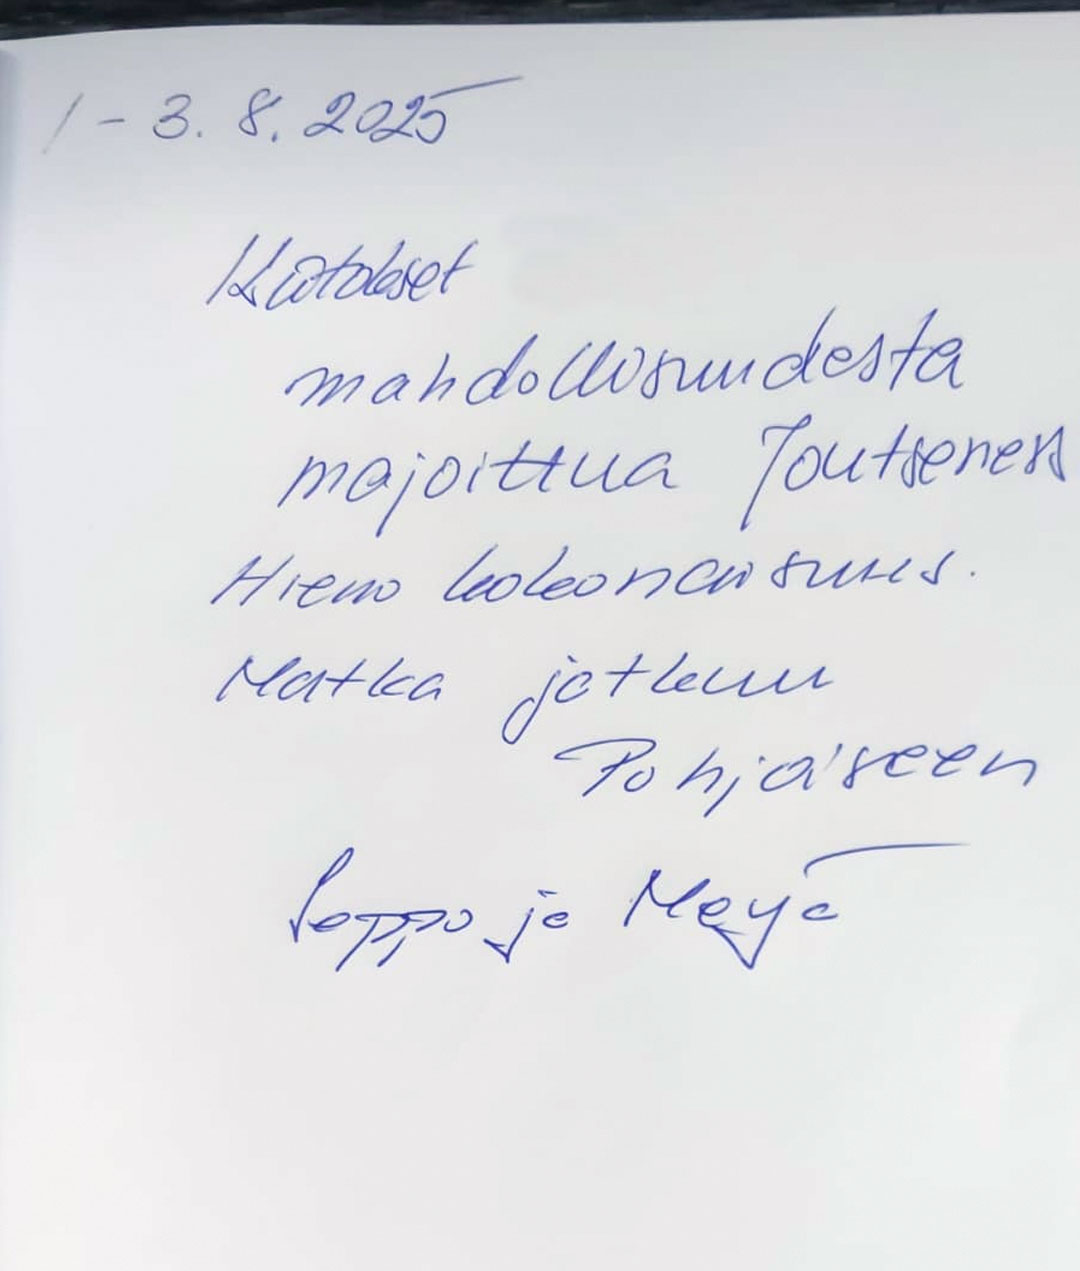 1-3. 8. 2025
Kiitokset
mahdollisuudesta
majoittua Joutseness
Hieno kokonaisuus.
Matka jatkuu
Pohjoiseen
Seppo ja